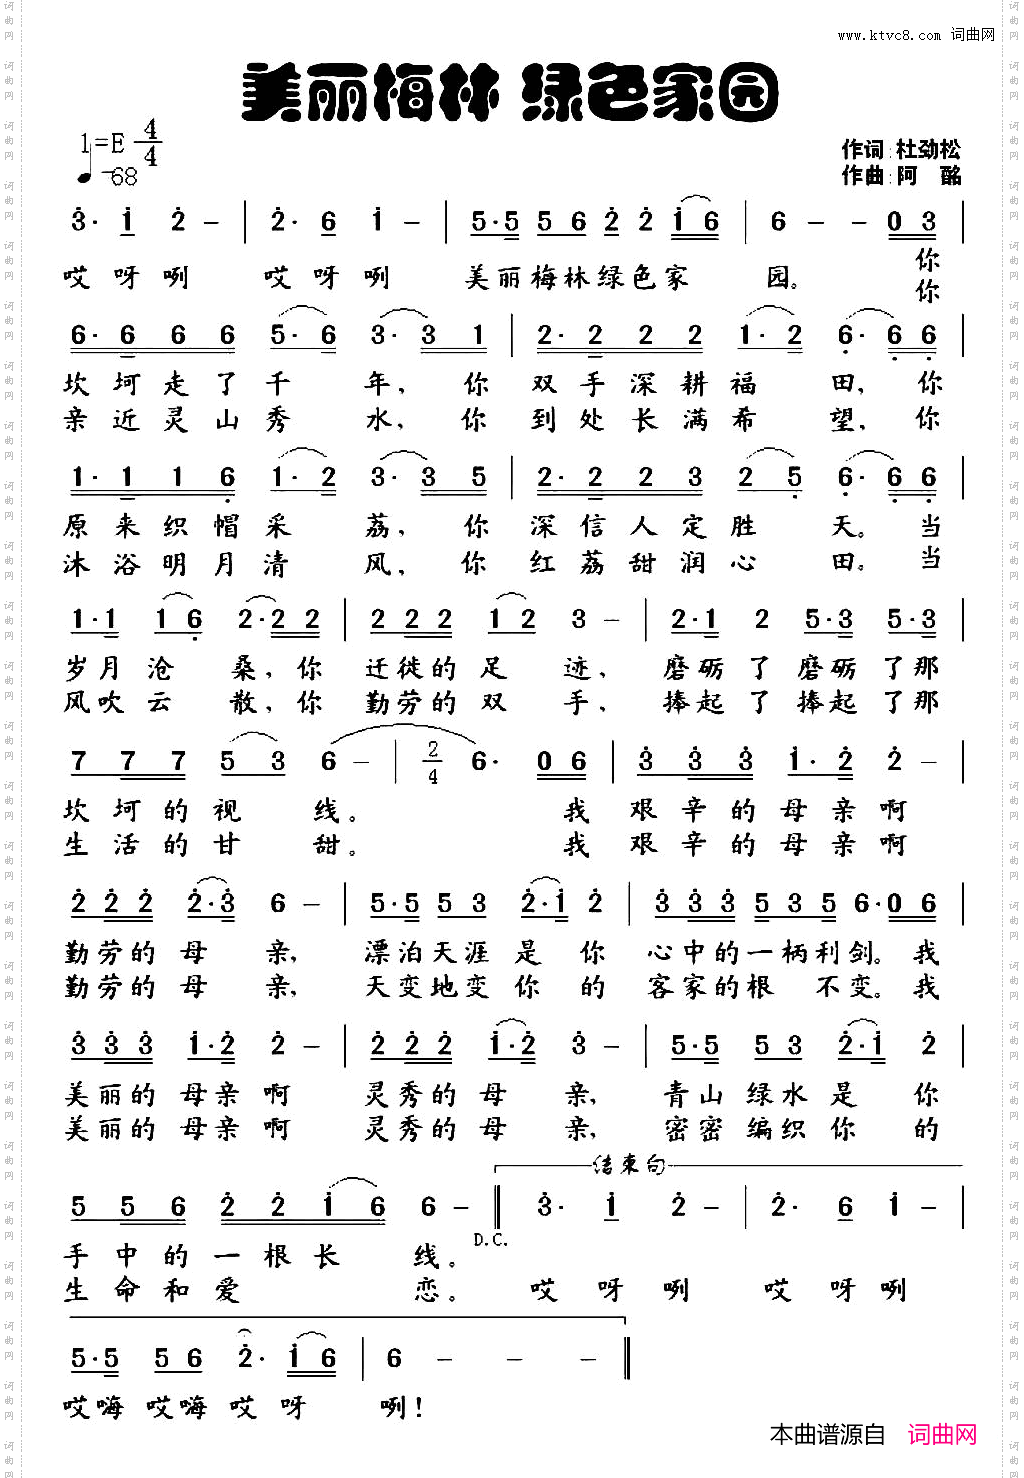 www.ktvc8.com 词曲网
美丽梅林 绿色家园
1=E 4/4
♩=68
作词:杜劲松
作曲:阿 酩
3· 1 2 - | 2· 6 1 - | 5·5 5 6 2 2 1 6 | 6 - - 0 3 |
哎呀咧 哎呀咧 美丽梅林绿色家 园。 你
你
6· 6 6 6 5·6 3· 3 1 | 2· 2 2 2 1·2 6· 6 6 |
坎坷走了千 年, 你 双手深耕福 田, 你
亲近灵山秀 水, 你 到处长满希 望, 你
1· 1 1 6 1·2 3· 3 5 | 2· 2 2 3 2 5 6· 6 6 |
原来织帽采 荔, 你 深信人定胜 天。 当
沐浴明月清 风, 你 红荔甜润心 田。 当
1·1 1 6 2·2 2 | 2 2 2 1 2 3 - | 2·1 2 5·3 5·3 |
岁月沧 桑, 你 迁徙的足 迹, 磨砺了磨砺了那
风吹云 散, 你 勤劳的双 手, 捧起了捧起了那
7 7 7 5 3 6 - | 2/4 6· 0 6 | 3 3 3 1·2 2 - |
坎坷的视 线。 我 艰辛的母亲啊
生活的甘 甜。 我 艰辛的母亲啊
2 2 2 2·3 6 - | 5·5 5 3 2·1 2 | 3 3 3 5 3 5 6·0 6 |
勤劳的母 亲, 漂泊天涯是 你 心中的一柄利剑。我
勤劳的母 亲, 天变地变你 的 客家的根 不变。我
3 3 3 1·2 2 - | 2 2 2 1·2 3 - | 5·5 5 3 2·1 2 |
美丽的母亲啊 灵秀的母 亲, 青山绿水是 你
美丽的母亲啊 灵秀的母 亲, 密密编织你 的
结束句
5 5 6 2 2 1 6 6 - ‖ 3· 1 2 - | 2· 6 1 - |
D.C.
手中的一根长 线。
生命和爱 恋。 哎呀咧 哎呀咧
5·5 5 6 2· 1 6 | 6 - - - ‖
哎嗨哎嗨哎呀 咧!
本曲谱源自 词曲网